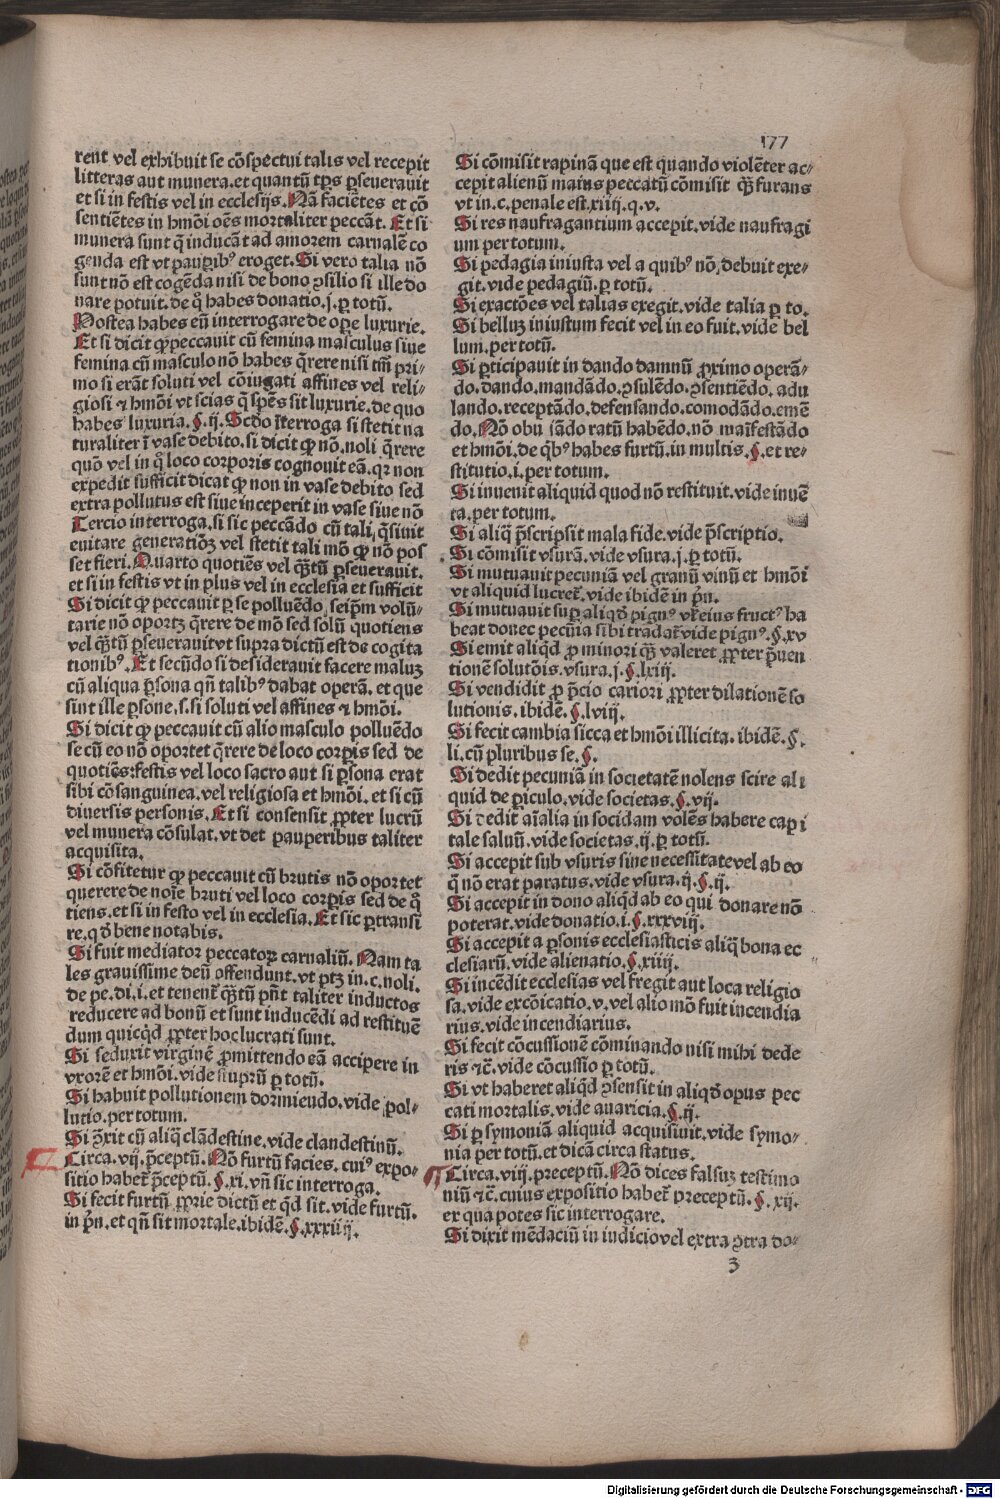 177
rent vel exhibuit se cōspectui talis vel recepit
litteras aut munera.et quantū tꝑs ꝑseuerauit
et si in festis vel in ecclesijs. Nā faciētes et cō
sentiētes in hmōi oēs mortaliter peccāt. Et si
munera sunt q̄ inducāt ad amorem carnalē co
genda est vt pauꝑibꝰ eroget. Si vero talia nō
sunt nō est cogēda nisi de bono ꝯsilio si ille do
nare potuit.de q̄ habes donatio.j.ꝑ totū.
Postea habes eū interrogare de oꝑe luxurie.
Et si dicit ꝙ peccauit cū femina masculus siue
femina cū masculo nō habes q̄rere nisi tm̄ pri-
mo si erāt soluti vel cōiugati affines vel reli-
giosi ⁊ hmōi vt scias q̄ spēs sit luxurie.de quo
habes luxuria.§.ij. Scdo īterroga si stetit na
turaliter ī vase debito.si dicit ꝙ nō.noli q̄rere
quō vel in q̊ loco corporis cognouit eā.qꝛ non
expedit sufficit dicat ꝙ non in vase debito sed
extra pollutus est siue inceperit in vase siue nō
Tercio interroga.si sic peccādo cū tali q̄siuit
euitare generatiōꝫ vel stetit tali mō ꝙ nō pos
set fieri. Quarto quotiēs vel q̄ꝫtū ꝑseuerauit.
et si in festis vt in plus vel in ecclesia et sufficit
Si dicit ꝙ peccauit ꝑ se polluēdo seip̄m volū-
tarie nō oportꝫ q̄rere de mō sed solū quotiens
vel q̄ꝫtū ꝑseuerauit vt supra dictū est de cogita
tionibꝰ. Et secūdo si desiderauit facere maluꝫ
cū aliqua ꝑsona qn̄ talibꝰ dabat operā.et que
sint ille ꝑsone.s.si soluti vel affines ⁊ hmōi.
Si dicit ꝙ peccauit cū alio masculo polluēdo
se cū eo nō oportet q̄rere de loco corꝑis sed de
quotiēs:festis vel loco sacro aut si ꝑsona erat
sibi cōsanguinea.vel religiosa et hmōi.et si cū
diuersis personis. Et si consensit ꝓpter lucrū
vel munera cōsulat.vt det pauperibus taliter
acquisita.
Si cōfitetur ꝙ peccauit cū brutis nō oportet
querere de noīe bruti vel loco corꝑis sed de q̊
tiens.et si in festo vel in ecclesia. Et sic ꝑtransi
re.qđ bene notabis.
Si fuit mediator peccatoꝝ carnaliū. Nam ta
les grauissime deū offendunt.vt ptꝫ in.c.noli.
de pe.di.i.et tenent̄ q̄ꝫtū pn̄t taliter inductos
reducere ad bonū et sunt inducēdi ad restituē
dum quicq̇d ꝓpter hoc lucrati sunt.
Si seduxit virginē ꝓmittendo eā accipere in
vxorē et hmōi.vide stuprū ꝑ totū.
Si habuit pollutionem dormiendo.vide pol-
lutio.per totum.
Si ꝯ̄xit cū aliq̄ clādestine.vide clandestinū.
Circa.vij.p̄ceptū. Nō furtū facies.cuiꝰ expo-
sitio habet̄ p̄ceptū.§.xi.vn̄ sic interroga.
Si fecit furtū ꝓprie dictū et q̇d sit.vide furtū.
in p̄n.et qn̄ sit mortale.ibidē.§.xxxiiij.
Si cōmisit rapinā que est quando violēter ac-
cepit alienū maius peccatū cōmisit q̄ꝫ furans
vt in.c.penale est.xiiij.q.v.
Si res naufragantium accepit.vide naufragi
um per totum.
Si pedagia iniusta vel a quibꝰ nō debuit exe-
git.vide pedagiū.ꝑ totū.
Si exactōes vel talias exegit.vide talia ꝑ to.
Si belluꝫ iniustum fecit vel in eo fuit.vide bel
lum.per totū.
Si ꝑticipauit in dando damnū ꝓximo operā-
do.dando.mandādo.ꝯsulēdo.ꝯsentiēdo.adu
lando.receptādo.defensando.comodādo.emē
do. Nō obuiādo ratū habēdo.nō maīfestādo
et hmōi.de q̇bꝰ habes furtū.in multis.§.et re-
stitutio.i.per totum.
Si inuenit aliquid quod nō restituit.vide inuē
ta.per totum.
Si aliq̇ p̄scripsit mala fide.vide p̄scriptio.
Si cōmisit vsurā.vide vsura.j.ꝑ totū.
Si mutuauit pecuniā vel granū vinū et hmōi
vt aliquid lucret̄.vide ibidē in pn̄.
Si mutuauit suꝑ aliqđ pignꝰ vt eius fructꝰ ha
beat donec pecūia sibi tradat̄ vide pignꝰ.§.xv
Si emit aliq̇d ꝓ minori q̄ꝫ valeret ꝓpter p̄uen
tionē solutōis.vsura.j.§.lxiij.
Si vendidit ꝓ p̄cio cariori ꝓpter dilationē so
lutionis.ibidē.§.lviij.
Si fecit cambia sicca et hmōi illicita.ibidē.§.
li.cū pluribus se.§.
Si dedit pecuniā in societatē nolens scire ali
quid de ꝑiculo.vide societas.§.vij.
Si dedit aīalia in socidam volēs habere capi
tale saluū.vide societas.ij.ꝑ totū.
Si accepit sub vsuris sine necessitate vel ab eo
q̇ nō erat paratus.vide vsura.ij.§.ij.
Si accepit in dono aliq̇d ab eo qui donare nō
poterat.vide donatio.i.§.xxxviij.
Si accepit a ꝑsonis ecclesiasticis aliq̄ bona ec
clesiarū.vide alienatio.§.xiiij.
Si incēdit ecclesias vel fregit aut loca religio
sa.vide excōicatio.v.vel alio mō fuit incendia
rius.vide incendiarius.
Si fecit cōcussionē cōminando nisi mihi dede
ris ⁊c̄.vide cōcussio ꝑ totū.
Si vt haberet aliq̇d ꝯsensit in aliqđ opus pec
cati mortalis.vide auaricia.§.ij.
Si ꝑ symoniā aliquid acquisiuit.vide symo-
nia per totū.et dicā circa status.
Circa.viij.preceptū. Nō dices falsuꝫ testimo
niū ⁊c̄.cuius expositio habet̄ preceptū.§.xij.
ex qua potes sic interrogare.
Si dixit mēdaciū in iudicio vel extra ꝯtra do-
3
Digitalisierung gefördert durch die Deutsche Forschungsgemeinschaft - DFG